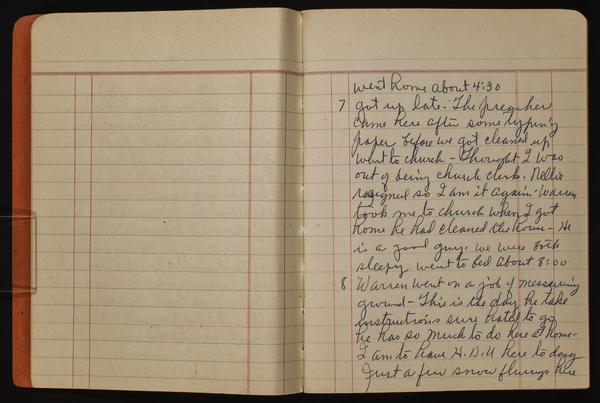 went home about 4:30
7 got up late. The preacher
came here after some typing
paper before we got cleaned up
went to church - Thought I was
out of being church clerk. Nellie
resigned so I am it again. Warren
took me to church when I got
home he had cleaned the house - He
is a good guy. we were both
sleepy went to bed about 8:00
8 Warren went on a job of measuring
ground - This is the day he take
instructions sure hated to go
he has so much to do here at home -
I am to have H.D.U here to day
Just a few snow flurrys here